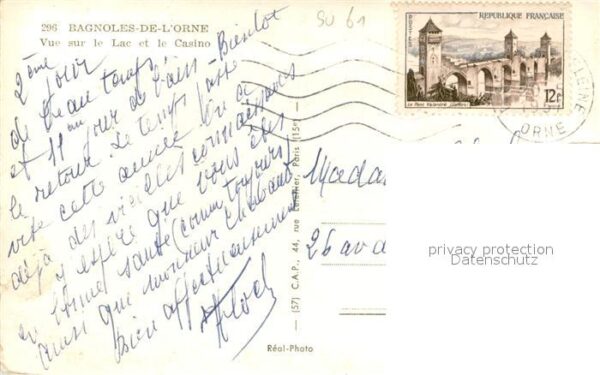 206 BAGNOLES-DE-L'ORNE
Vue sur le Lac et le Casino
SU 61
RÉPUBLIQUE FRANÇAISE
POSTES
Le Pont Valentré Cahors
12F
ORNE
2ème jour
de beau temps
et 11ème jour de bain - Bientôt
le retour. Le temps passe
vite cette année. On a
déjà des vieilles connaissances
J'espère que vous êtes
en bonne santé (comme toujours)
ainsi que monsieur
bien affectueusement
(57) C.A.P., 44, rue Letellier, Paris (15e)
Réal-Photo
Mada
26 av d
privacy protection
Datenschutz